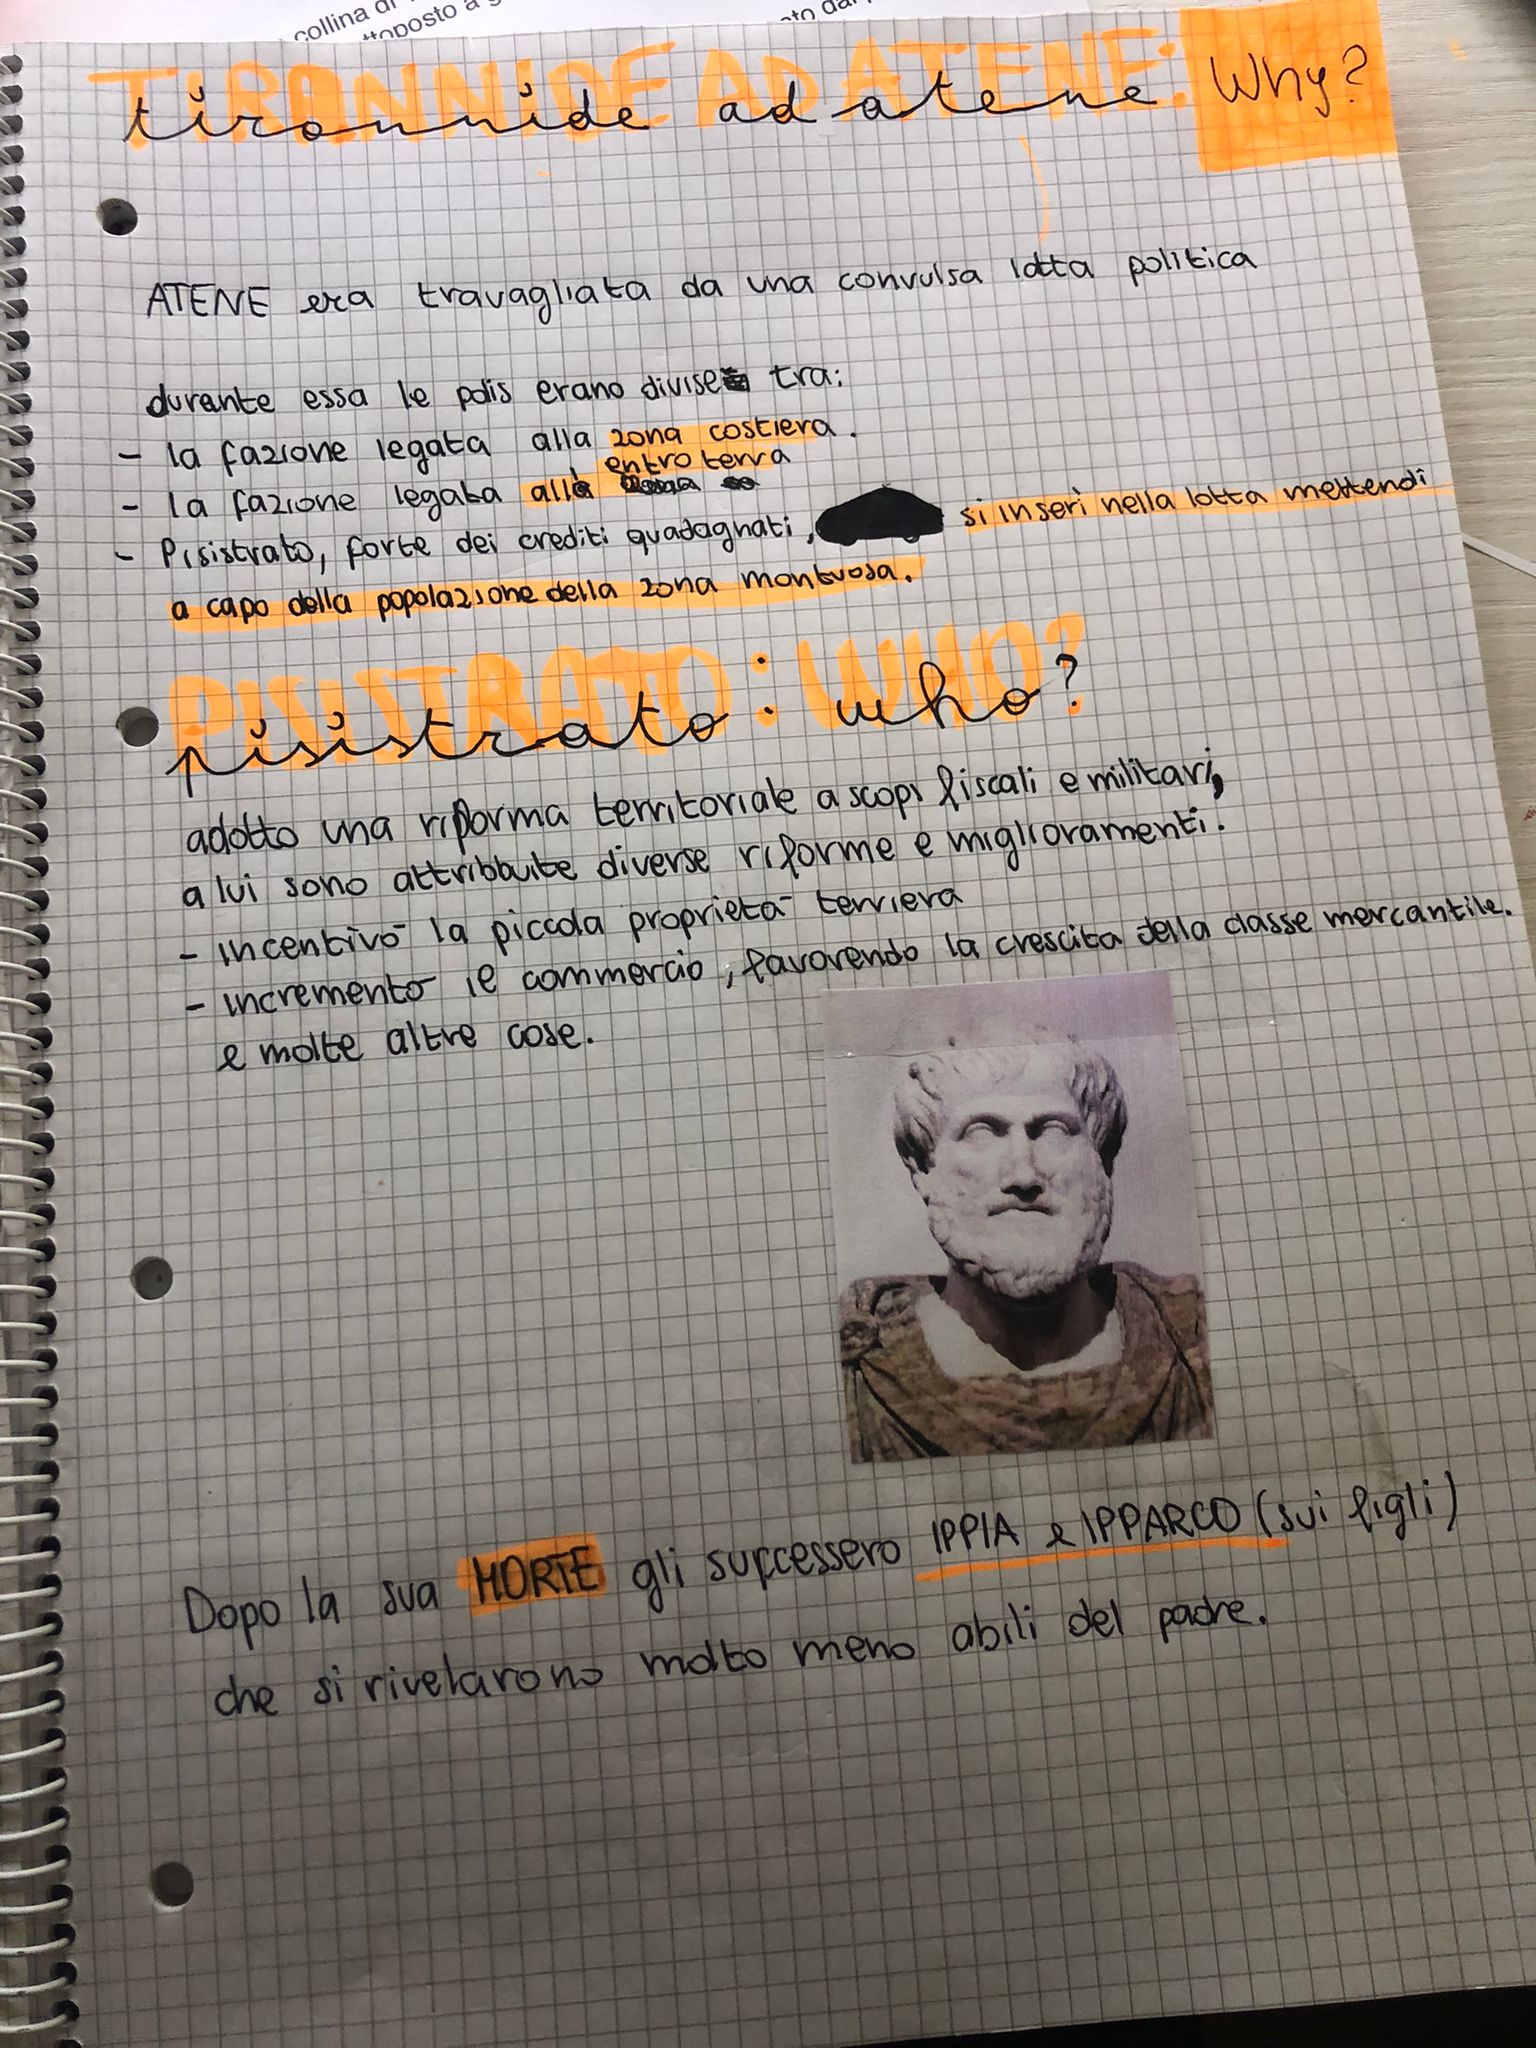 collina di
ttoposto a g
ato dal
TIRANNIDE AD ATENE: Why?
tirannide ad atene
ATENE era travagliata da una convulsa lotta politica
durante essa le polis erano divise tra:
- la fazione legata alla zona costiera.
entroterra
- la fazione legata all
- Pisistrato, forte dei crediti guadagnati, si inserì nella lotta mettendi
a capo della popolazione della zona montuosa.
PISISTRATO: WHO?
pisistrato: who?
adotto una riforma territoriale a scopi fiscali e militari,
a lui sono attribbuite diverse riforme e miglioramenti.
- incentivò la piccola proprietà terriera
- incrementò le commercio, favorendo la crescita della classe mercantile.
e molte altre cose.
Dopo la sua MORTE gli successero IPPIA e IPPARCO (sui figli)
che si rivelarono molto meno abili del padre.